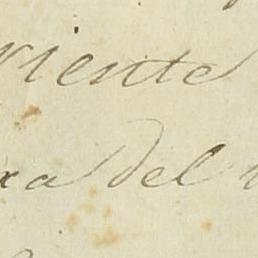 riente
xa del